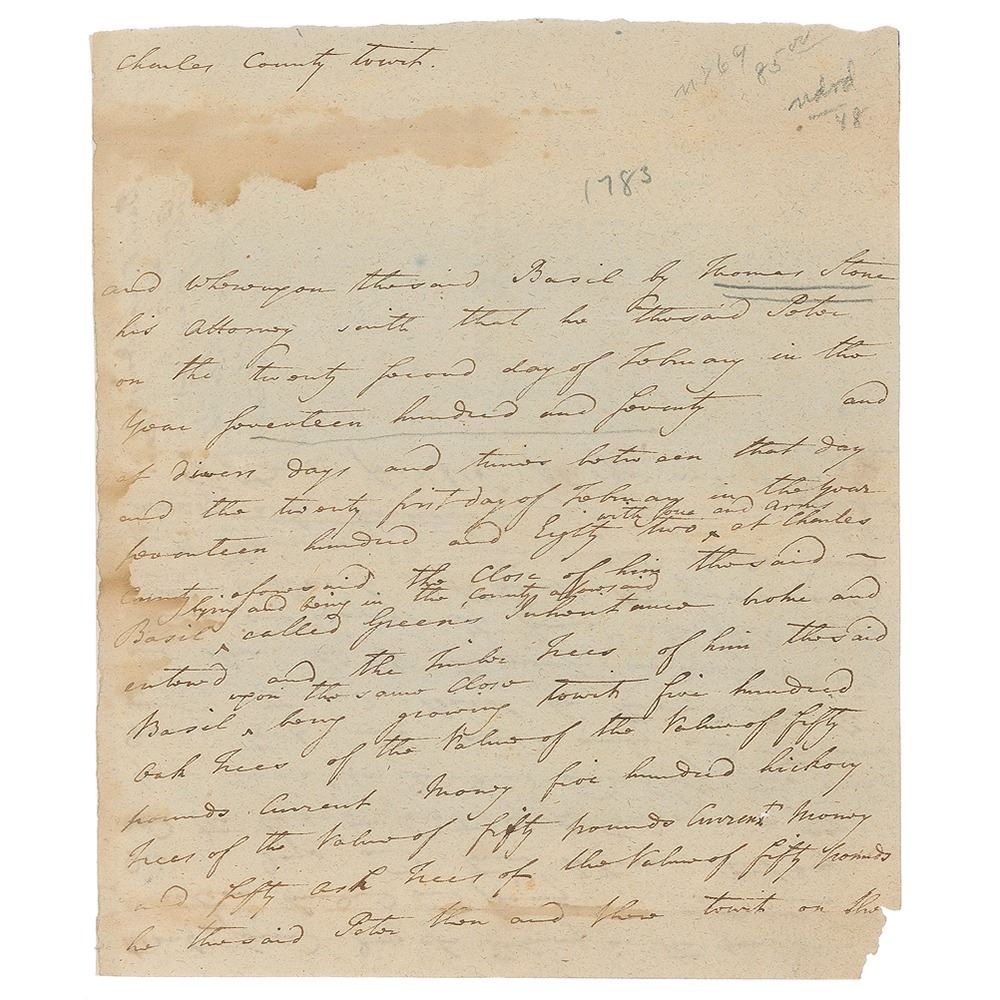 Charles County towit.
85 00
48
1783
and whereupon thesaid Basil by Thomas Stone
his Attorney saith that he thesaid Peter
on the twenty second day of February in the
Year seventeen hundred and seventy and
at divers days and times between that day
and the twenty first day of February in the Year
with force and Arms
seventeen hundred and Eighty two at Charles
County aforesaid the Close of him thesaid
lying and being in the County aforesaid
Basil called Greens Inheritance broke and
entered and the Timber Trees of him thesaid
upon the same Close
Basil being growing towit five hundred
Oak Trees of the Value of the Value of fifty
pounds Current Money five hundred hickory
Trees of the Value of fifty pounds Current Money
and fifty ash Trees of the Value of fifty pounds
he thesaid Peter then and there towit on the